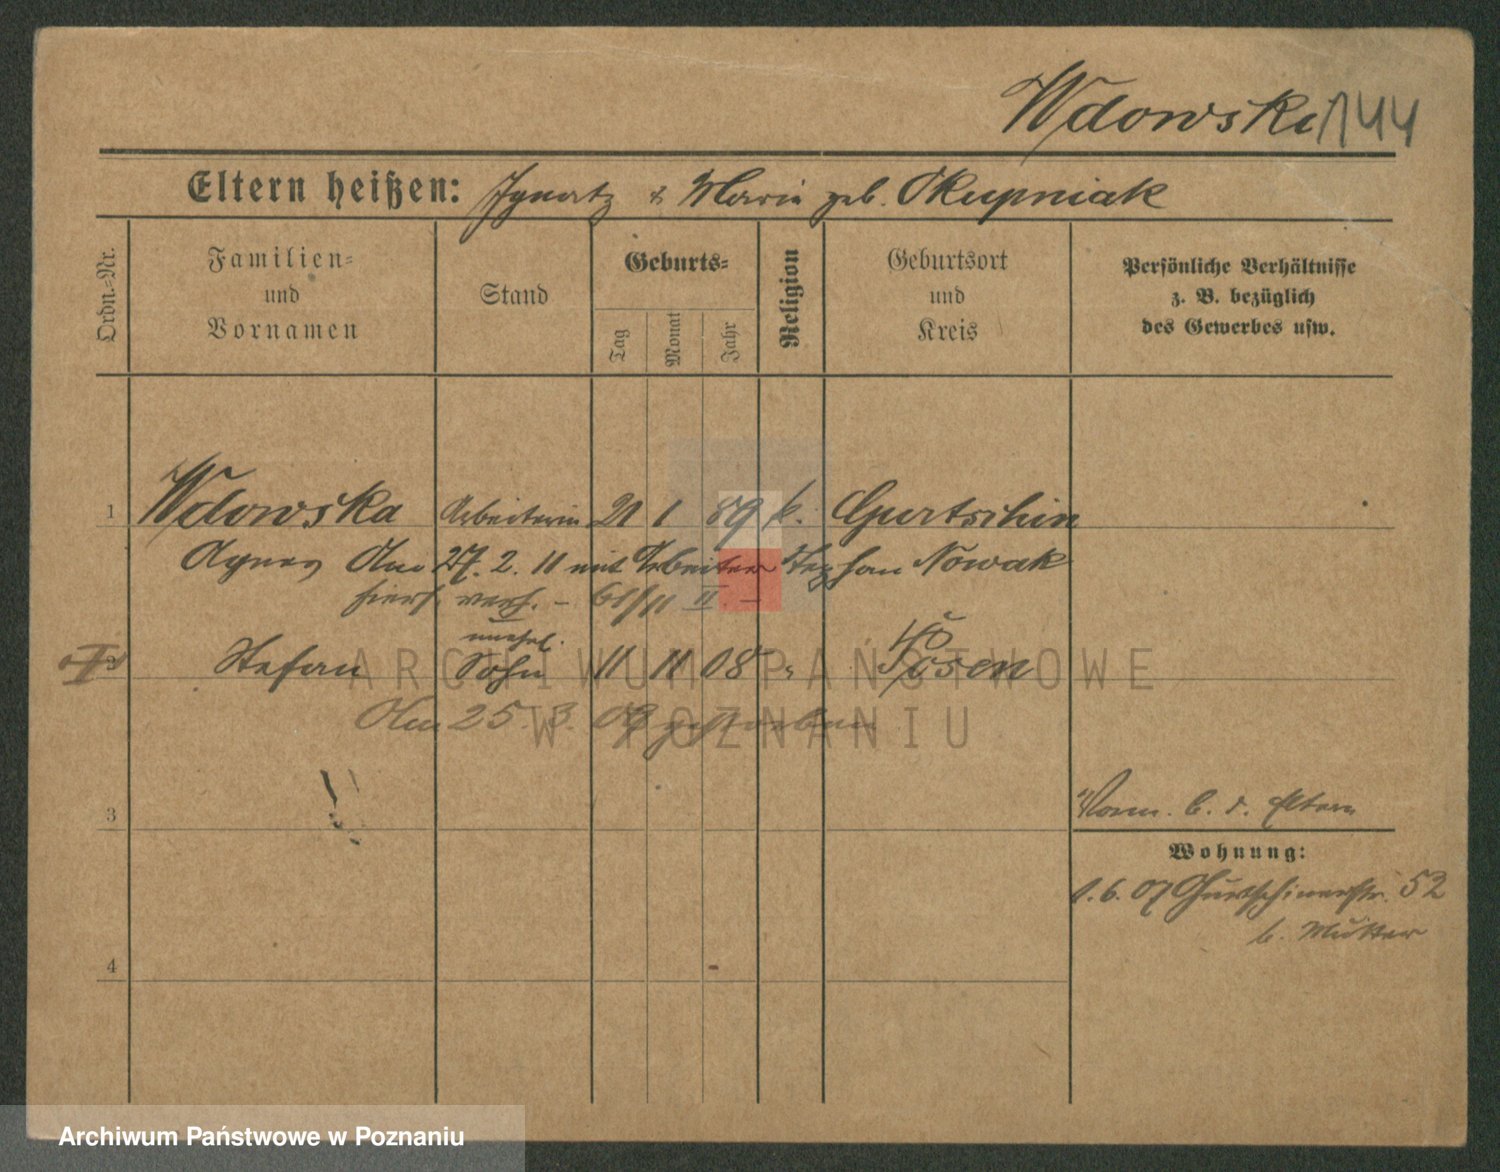 Wdowski 144
Eltern heißen: Ignatz & Maria geb. Skupniak
Ordn.=Nr.
Familien=
und
Vornamen
Stand
Geburts=
Tag
Monat
Jahr
Religion
Geburtsort
und
Kreis
Persönliche Verhältnisse
z. B. bezüglich
des Gewerbes usw.
1 Wdowska Arbeiterin 21 1 89 k. Gurtschin
Agnes Am 27. 2. 11 mit Arbeiter Stephan Nowak
hiers. verh. – 61/11 II. –
unehel.
2 Stefan Sohn 11 11 08 " Posen
Am 25. 3. 09 gestorben
3
Vorm. b. d. Eltern
Wohnung:
1. 6. 07 Gurtschinerstr. 52
b. Mutter
4
ARCHIWUM PAŃSTWOWE
W POZNANIU
Archiwum Państwowe w Poznaniu